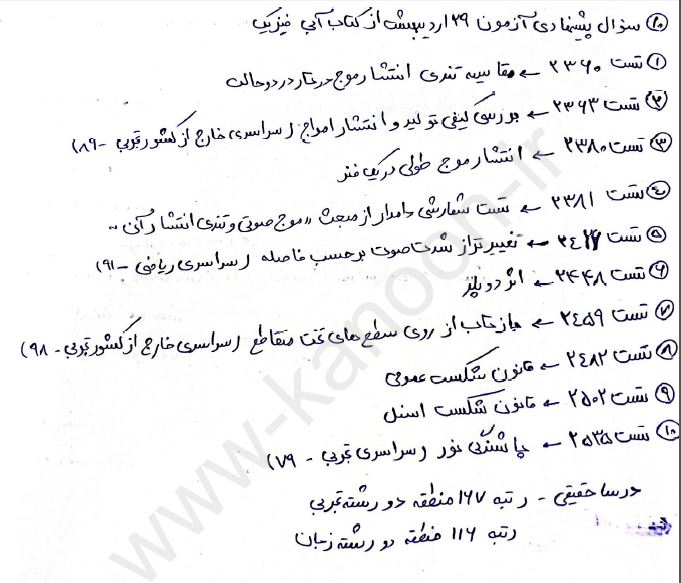 ۱۰ سؤال پیشنهادی آزمون ۲۹ اردیبهشت از کتاب آبی فیزیک
① تست ۲۳۶۰ ← مقایسه تندی انتشار موج در تار در دو حالت
② تست ۲۳۶۳ ← بررسی کیفی تولید و انتشار امواج (سراسری خارج از کشور تجربی - ۸۹)
③ تست ۲۳۸۰ ← انتشار موج طولی در یک فنر
④ تست ۲۳۸۱ ← تست شمارشی دامدار از مبحث «موج صوتی و تندی انتشار آن»
⑤ تست ← تغییر تراز شدت صوت بر حسب فاصله (سراسری ریاضی - ۹۱)
⑥ تست ۲۴۴۸ ← اثر دوپلر
⑦ تست ۲۴۵۹ ← بازتاب از روی سطح های تخت متقاطع (سراسری خارج از کشور تجربی - ۹۸)
⑧ تست ۲۴۸۲ ← قانون شکست عمومی
⑨ تست ۲۵۰۲ ← قانون شکست اسنل
⑩ تست ۲۵۳۵ ← پاشندگی نور (سراسری تجربی - ۷۹)
درسا حقیقی - رتبه ۱۶۷ منطقه دو رشته تجربی
رتبه ۱۱۶ منطقه دو رشته زبان
www.kanoon.ir